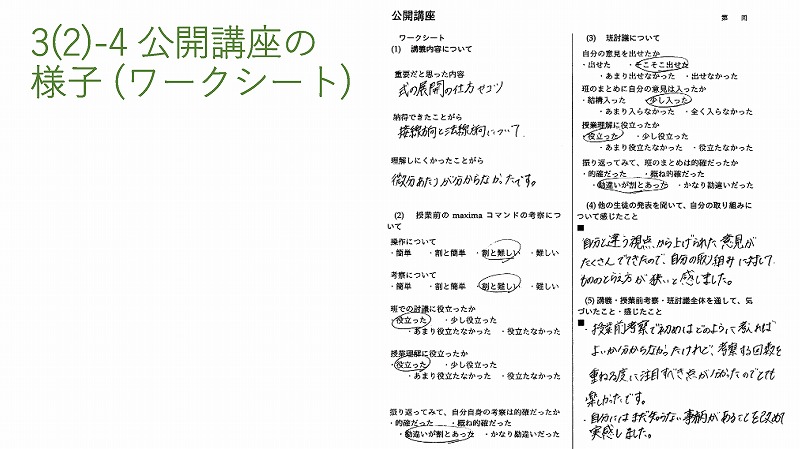 3(2)-4 公開講座の
様子 (ワークシート)
公開講座
第　回
ワークシート
(1)　講義内容について
重要だと思った内容
式の展開の仕方やコツ
納得できたことがら
接線方向と法線方向について.
理解しにくかったことがら
微分あたりが分からなかったです。
(2)　授業前の maxima コマンドの考察につ
いて
操作について
・簡単　・割と簡単　・割と難しい　・難しい
考察について
・簡単　・割と簡単　・割と難しい　・難しい
班での討議に役立ったか
・役立った　・少し役立った
・あまり役立たなかった　・役立たなかった
授業理解に役立ったか
・役立った　・少し役立った
・あまり役立たなかった　・役立たなかった
振り返ってみて、自分自身の考察は的確だったか
・的確だった　・概ね的確だった
・勘違いが割とあった　・かなり勘違いだった
(3)　班討議について
自分の意見を出せたか
・出せた　・そこそこ出せた
・あまり出せなかった　・出せなかった
班のまとめに自分の意見は入ったか
・結構入った　・少し入った
・あまり入らなかった　・全く入らなかった
授業理解に役立ったか
・役立った　・少し役立った
・あまり役立たなかった　・役立たなかった
振り返ってみて、班のまとめは的確だったか
・的確だった　・概ね的確だった
・勘違いが割とあった　・かなり勘違いだった
(4) 他の生徒の発表を聞いて、自分の取り組みに
ついて感じたこと
■
自分と違う視点から上げられた意見が
たくさんでてきたので、自分の取り組みに対して
もののとらえ方が狭いと感じました。
(5) 講義・授業前考察・班討議全体を通して、気
づいたこと・感じたこと
■
・授業前考察で初めはどのように考えれば
よいか分からなかったけれど、考察する回数を
重ねる度に注目すべき点が分かったのでとても
楽しかったです。
・自分にはまだ知らない事柄があることを改めて
実感しました。